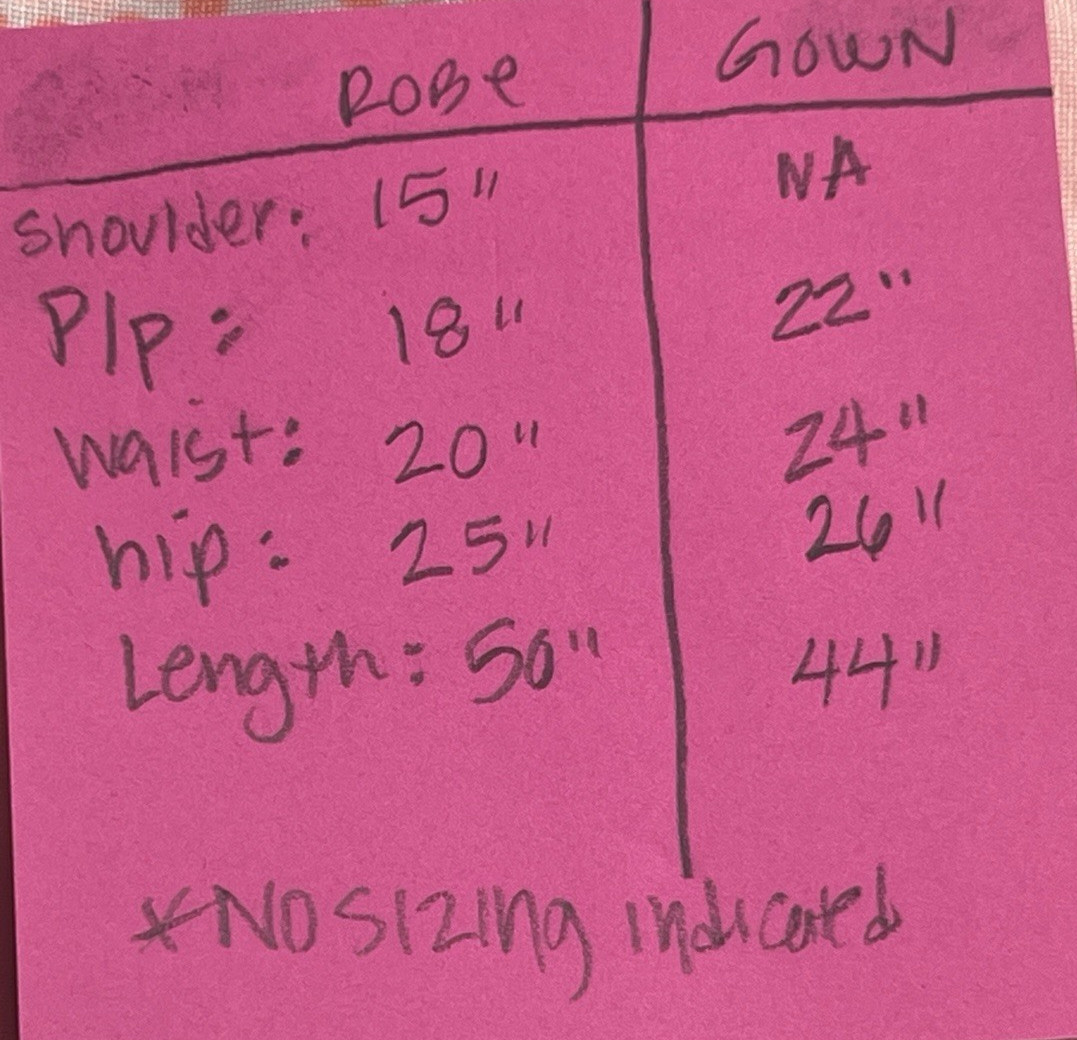 ROBe GOWN
Shoulder: 15" NA
P/p: 18" 22"
Waist: 20" 24"
hip: 25" 26"
Length: 50" 44"
*NO SIZING indicated